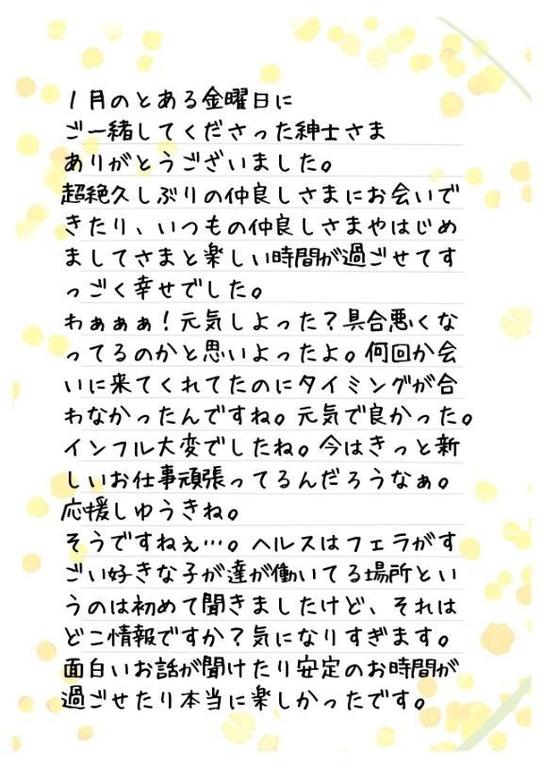 1月のとある金曜日に
ご一緒してくださった紳士さま
ありがとうございました。
超絶久しぶりの仲良しさまにお会いで
きたり、いつもの仲良しさまやはじめ
ましてさまと楽しい時間が過ごせてす
っごく幸せでした。
わぁぁぁ！元気しよった？具合悪くな
ってるのかと思いよったよ。何回か会
いに来てくれてたのにタイミングが合
わなかったんですね。元気で良かった。
インフル大変でしたね。今はきっと新
しいお仕事頑張ってるんだろうなぁ。
応援しゆうきね。
そうですねぇ…。ヘルスはフェラがす
ごい好きな子が達が働いてる場所とい
うのは初めて聞きましたけど、それは
どこ情報ですか？気になりすぎます。
面白いお話が聞けたり安定のお時間が
過ごせたり本当に楽しかったです。